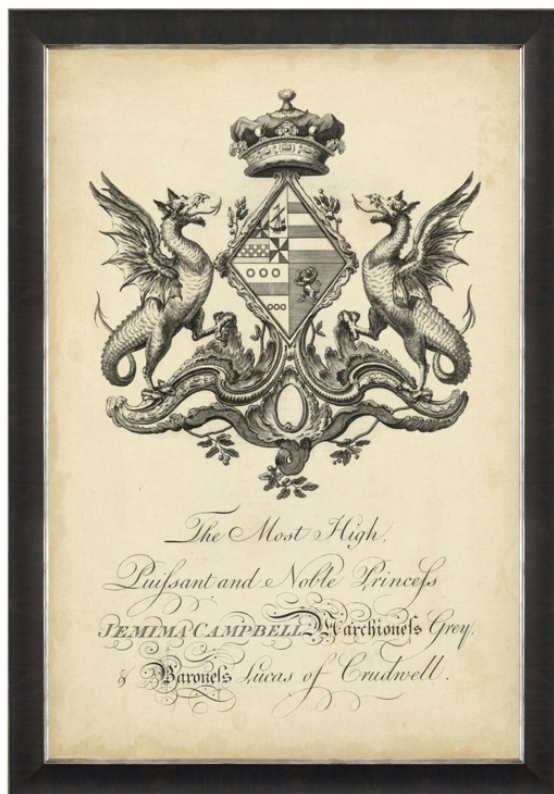 The Most High.
Puiſsant and Noble Princeſs
JEMIMA CAMPBELL Marchioneſs Grey.
& Baroneſs Lucas of Crudwell.